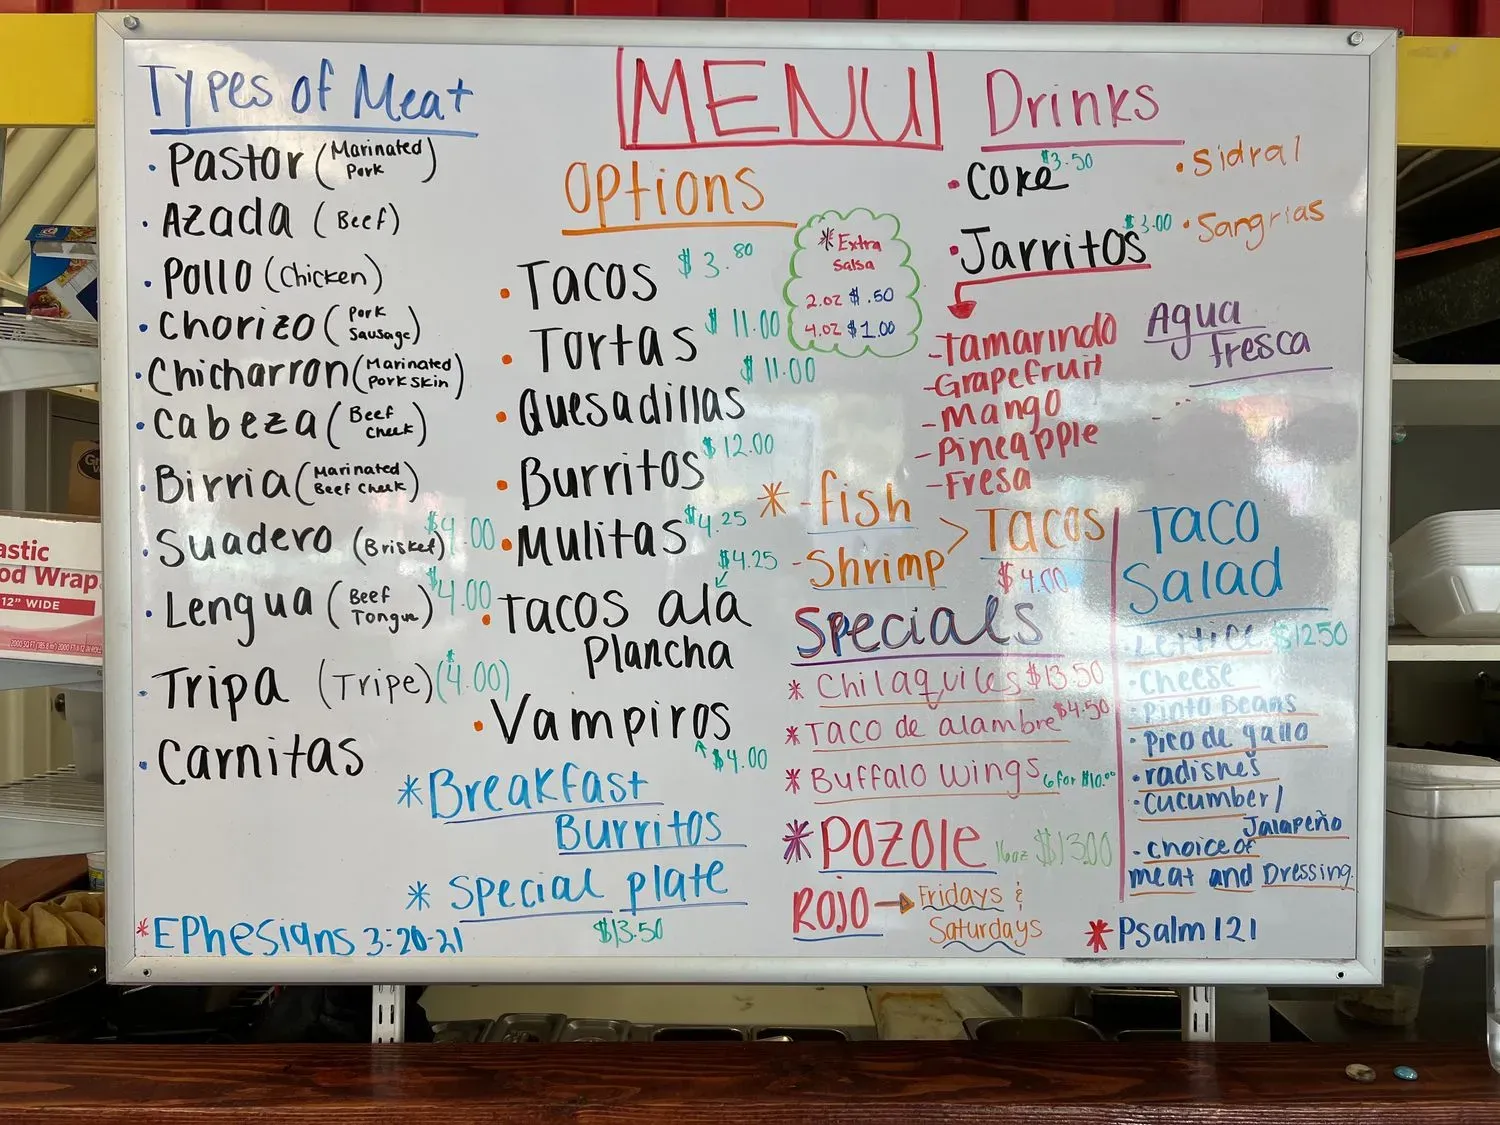 MENU
Types of Meat
• Pastor (Marinated Pork)
• Azada (Beef)
• Pollo (Chicken)
• Chorizo (Pork Sausage)
• Chicharron (Marinated Pork skin)
• Cabeza (Beef Cheek)
• Birria (Marinated Beef Cheek)
• Suadero (Brisket) $4.00
• Lengua (Beef Tongue) $4.00
• Tripa (Tripe) ($4.00)
• Carnitas
Options
• Tacos $3.80
• Tortas $11.00
• Quesadillas $11.00
• Burritos $12.00
• Mulitas $4.25
• Tacos ala $4.25
Plancha
• Vampiros
$4.00
* Breakfast
Burritos
* Special plate
$13.50
* Ephesians 3:20-21
* Extra
Salsa
2.oz $.50
4.oz $1.00
Drinks
• Coke $3.50
• Jarritos $3.00
- Tamarindo
- Grapefruit
- Mango
- Pineapple
- Fresa
• Sidral
• Sangrias
Agua
fresca
* - fish
- Shrimp > Tacos
$4.00
Specials
* Chilaquiles $13.50
* Taco de alambre $4.50
* Buffalo wings 6 for $10.00
* Pozole 16oz $13.00
Rojo → Fridays &
Saturdays
Taco
Salad
• Lettice $12.50
• Cheese
• Pinto Beans
• Pico de gallo
• radishes
• cucumber/
Jalapeño
- choice of
meat and Dressing
* Psalm 121
astic
od Wrap
12" WIDE